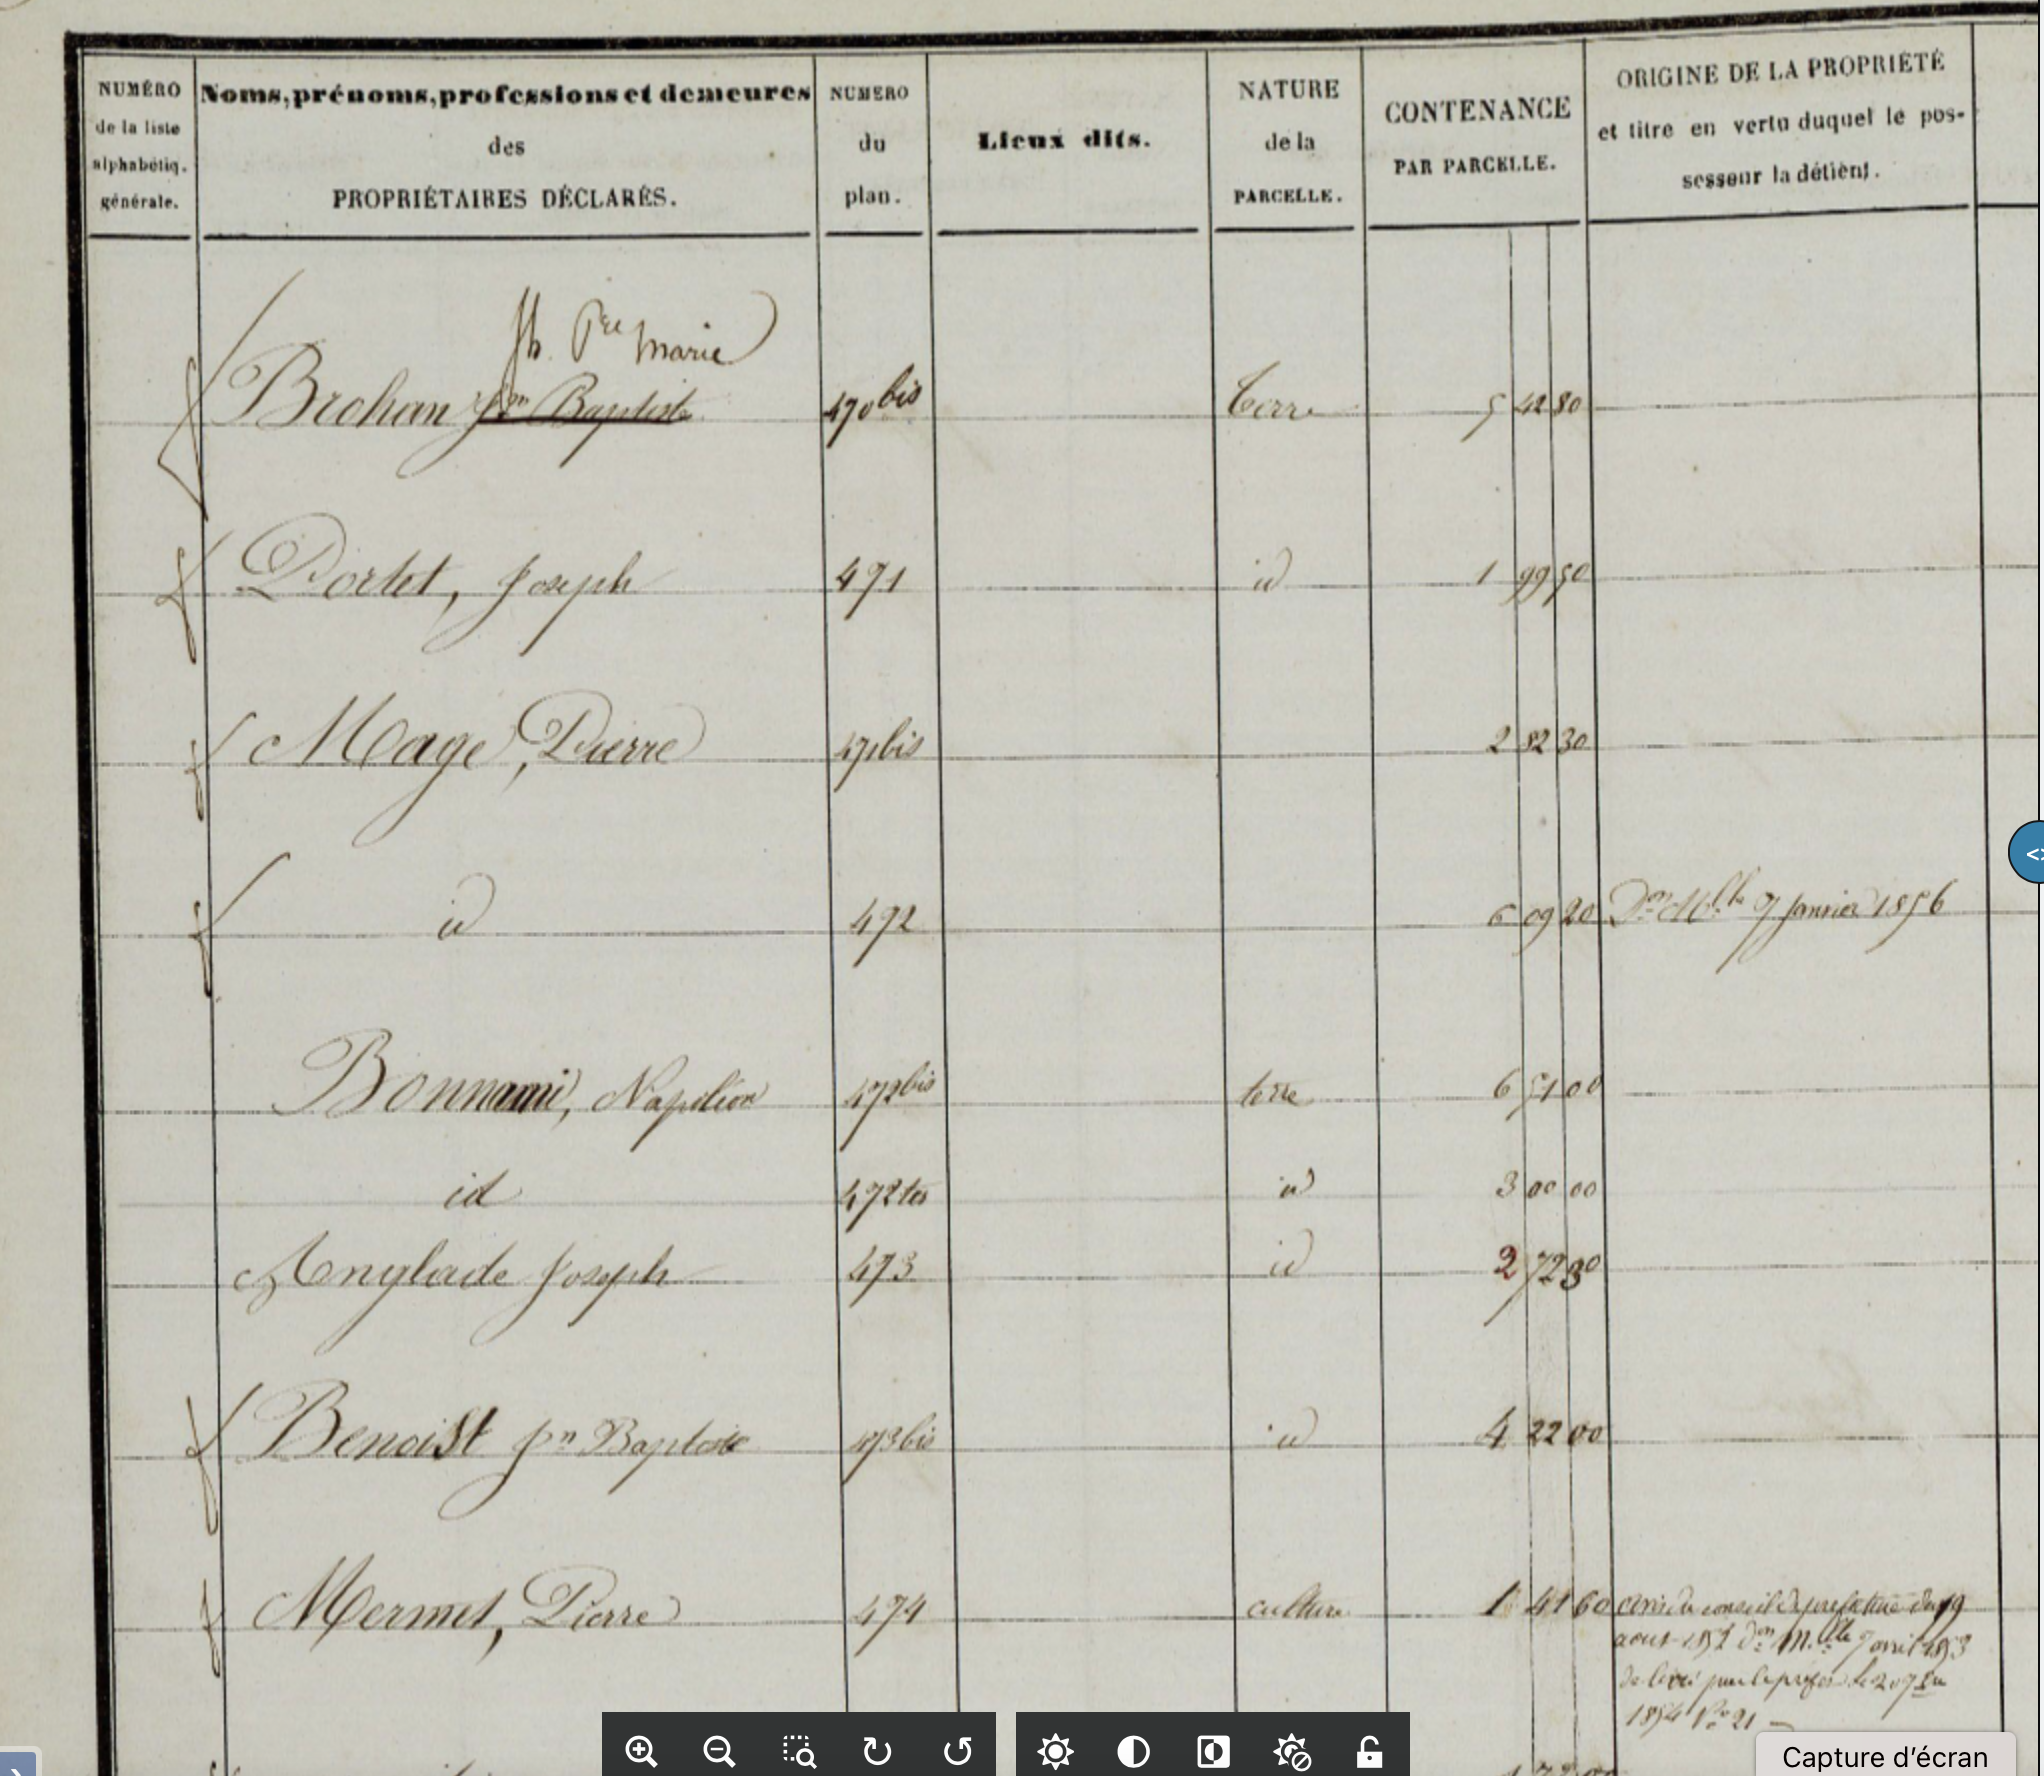 NUMÉRO
de la liste
alphabétiq.
générale.
Noms, prénoms, professions et demeures
des
PROPRIÉTAIRES DÉCLARÉS.
NUMERO
du
plan.
Lieux dits.
NATURE
de la
PARCELLE.
CONTENANCE
PAR PARCELLE.
ORIGINE DE LA PROPRIÉTÉ
et titre en vertu duquel le pos-
sesseur la détient.
Jh. Pre Marie
Brohan Jn Baptiste 470 bis terre 5 42 80
Dortet, Joseph 471 id 1 99 50
Mage, Pierre 471 bis 2 82 30
id 472 6 09 20 Don Mlle 7 Janvier 1856
Bonnami, Napoléon 472 bis terre 6 51 00
id 472 ter id 3 00 00
Anglade Joseph 473 id 2 72 30
Benoist Jn Baptiste 473 bis id 4 22 00
Mermet, Pierre 474 culture 1 41 60 avis du conseil de préfecture du 19
aout 1852 don M.lle 7 avril 1853
délivré par le préfet le 20 7bre
1854 No 21
Capture d'écran